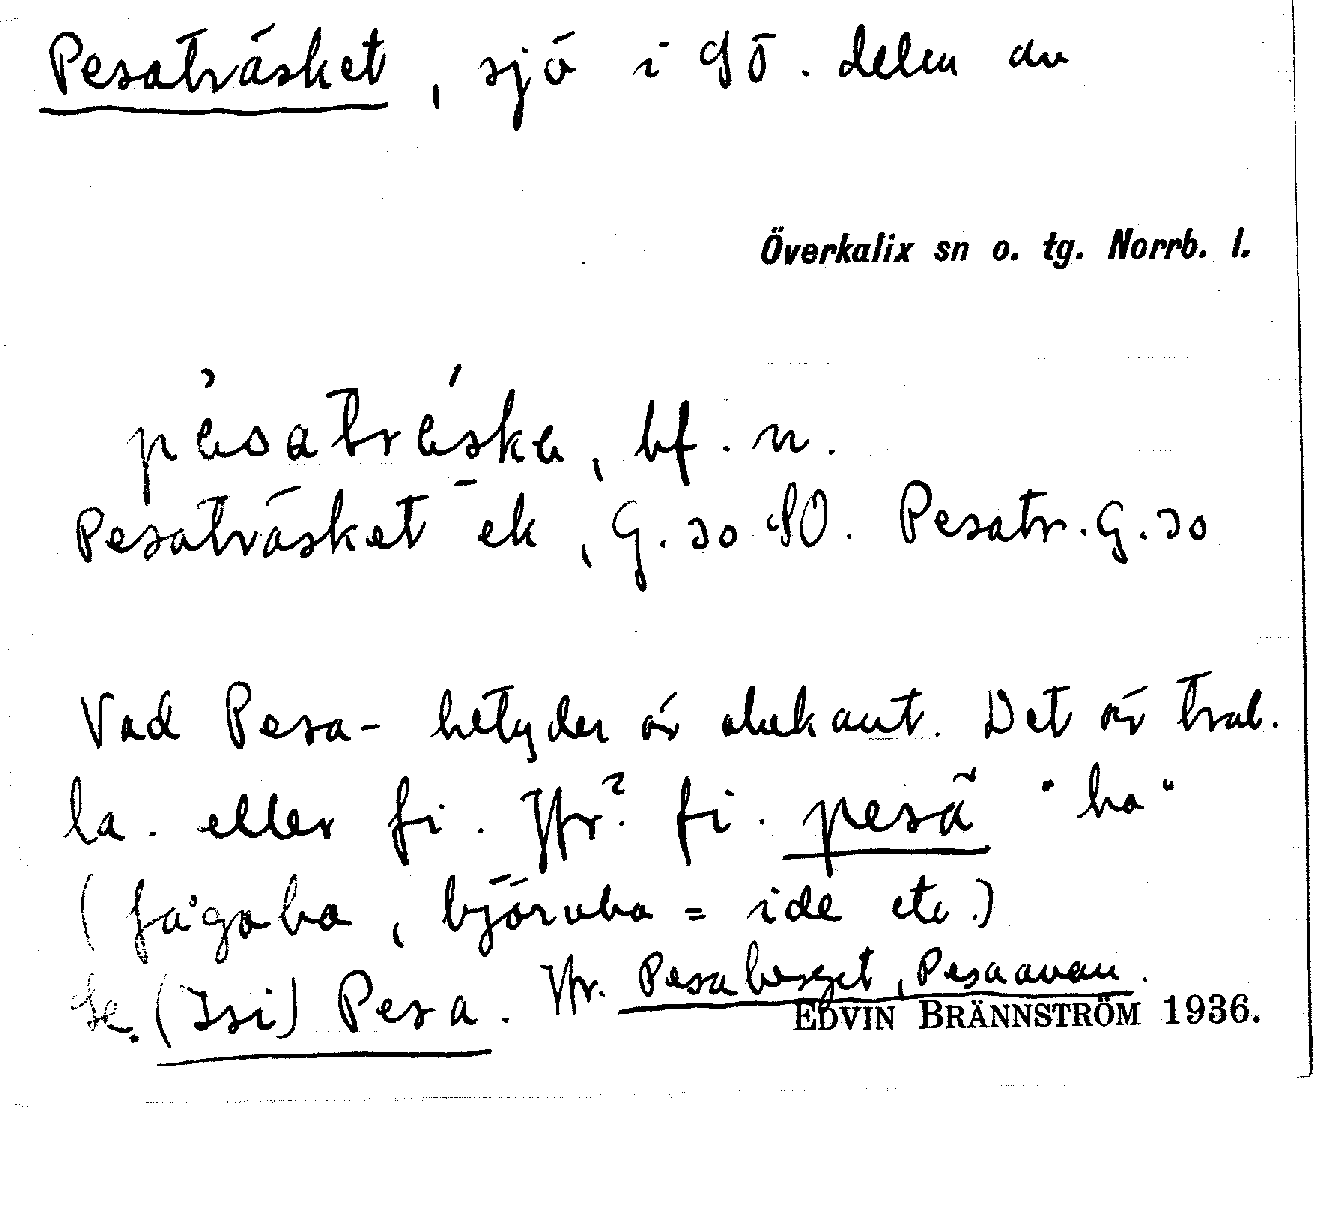 Pesaträsket, sjö i SÖ. delen av
Överkalix sn o. tg. Norrb. l.
pesatrеska, bf. n.
Pesaträsket ek, G. 30 SO. Pesatr. G. 30
Vad Pesa- betyder är obekant. Det är trol.
la. eller fi. Jfr? fi. pesä "bo"
(fågabo, björnbo = ide etc.)
Se. (Isi) Pesa. Jfr. Pesaberget, Pesaavan.
EDVIN BRÄNNSTRÖM 1936.